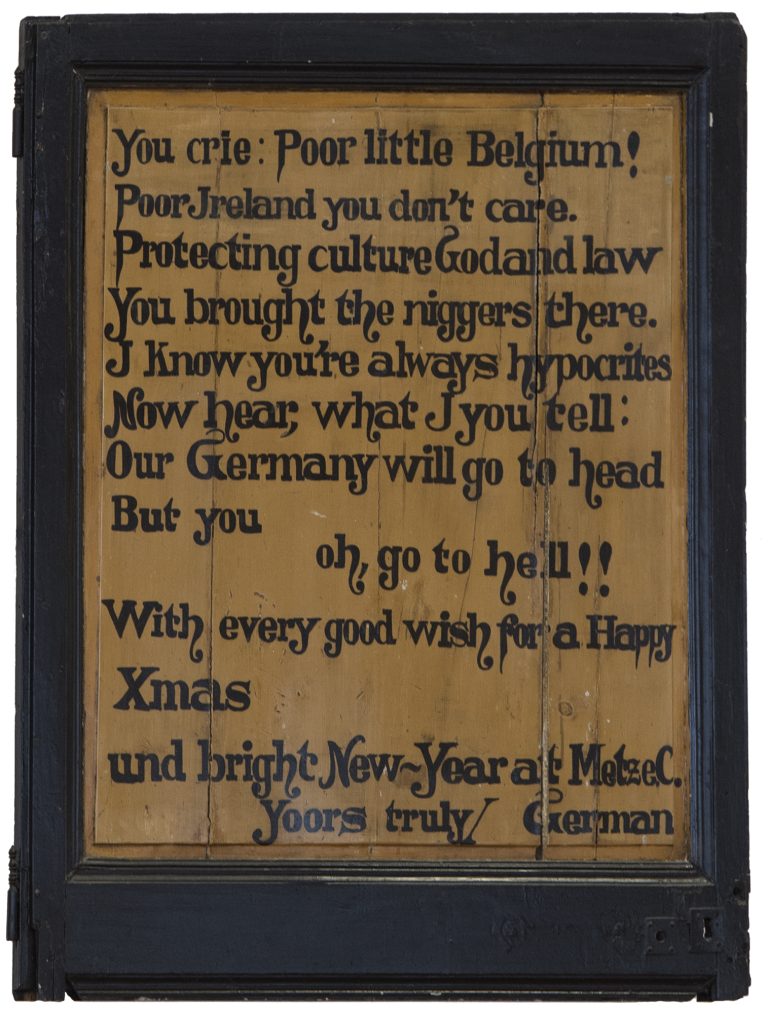 You crie: Poor little Belgium!
Poor Jreland you don't care.
Protecting culture God and law
You brought the niggers there.
J know you're always hypocrites
Now hear, what J you tell:
Our Germany will go to head
But you
oh, go to hell!!
With every good wish for a Happy
Xmas
und bright New-Year at Metz e.C.
Yoors truly/ German